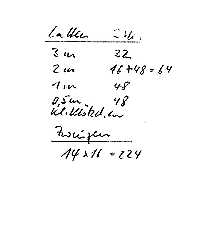 Latten Stk.
3 m 22
2 m 16 + 48 = 64
1 m 48
0,5 m 48
Zwingen
14 x 16 = 224